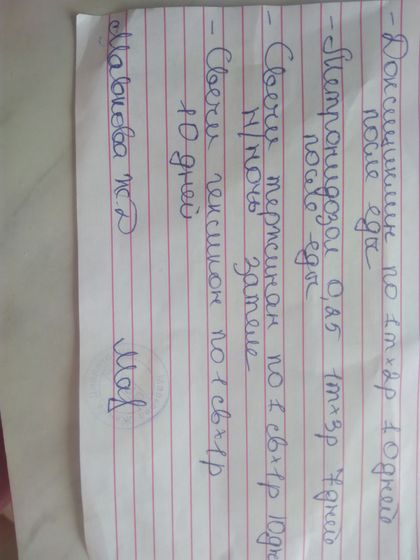 - Доксициклин по 1т×2р 10дней
после еды
- Метронидазол 0,25 1т×3р 7дней
после еды
- Свечи тержинан по 1 св×1р 10дн
н/ночь затем
- Свечи гексикон по 1 св×1р
10 дней
Мавлюкова